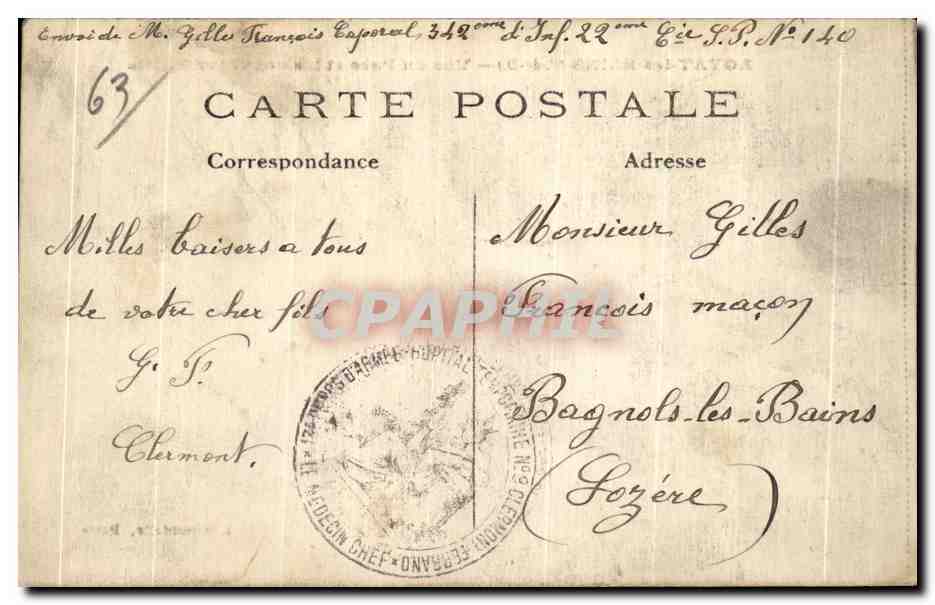 Envoi de M. Gilles François Caporal, 342eme d'Inf. 22eme Cie S.P. No 140
63/
CARTE POSTALE
Correspondance
Adresse
Milles baisers a tous
de votre cher fils
G. F.
Clermont.
Monsieur Gilles
François maçon
Bagnols-les-Bains
(Lozére)
CPAPHIL
CORPS D'ARMÉE - HOPITAL TEMPORAIRE No 9 CLERMONT-FERRAND * LE MEDECIN CHEF *